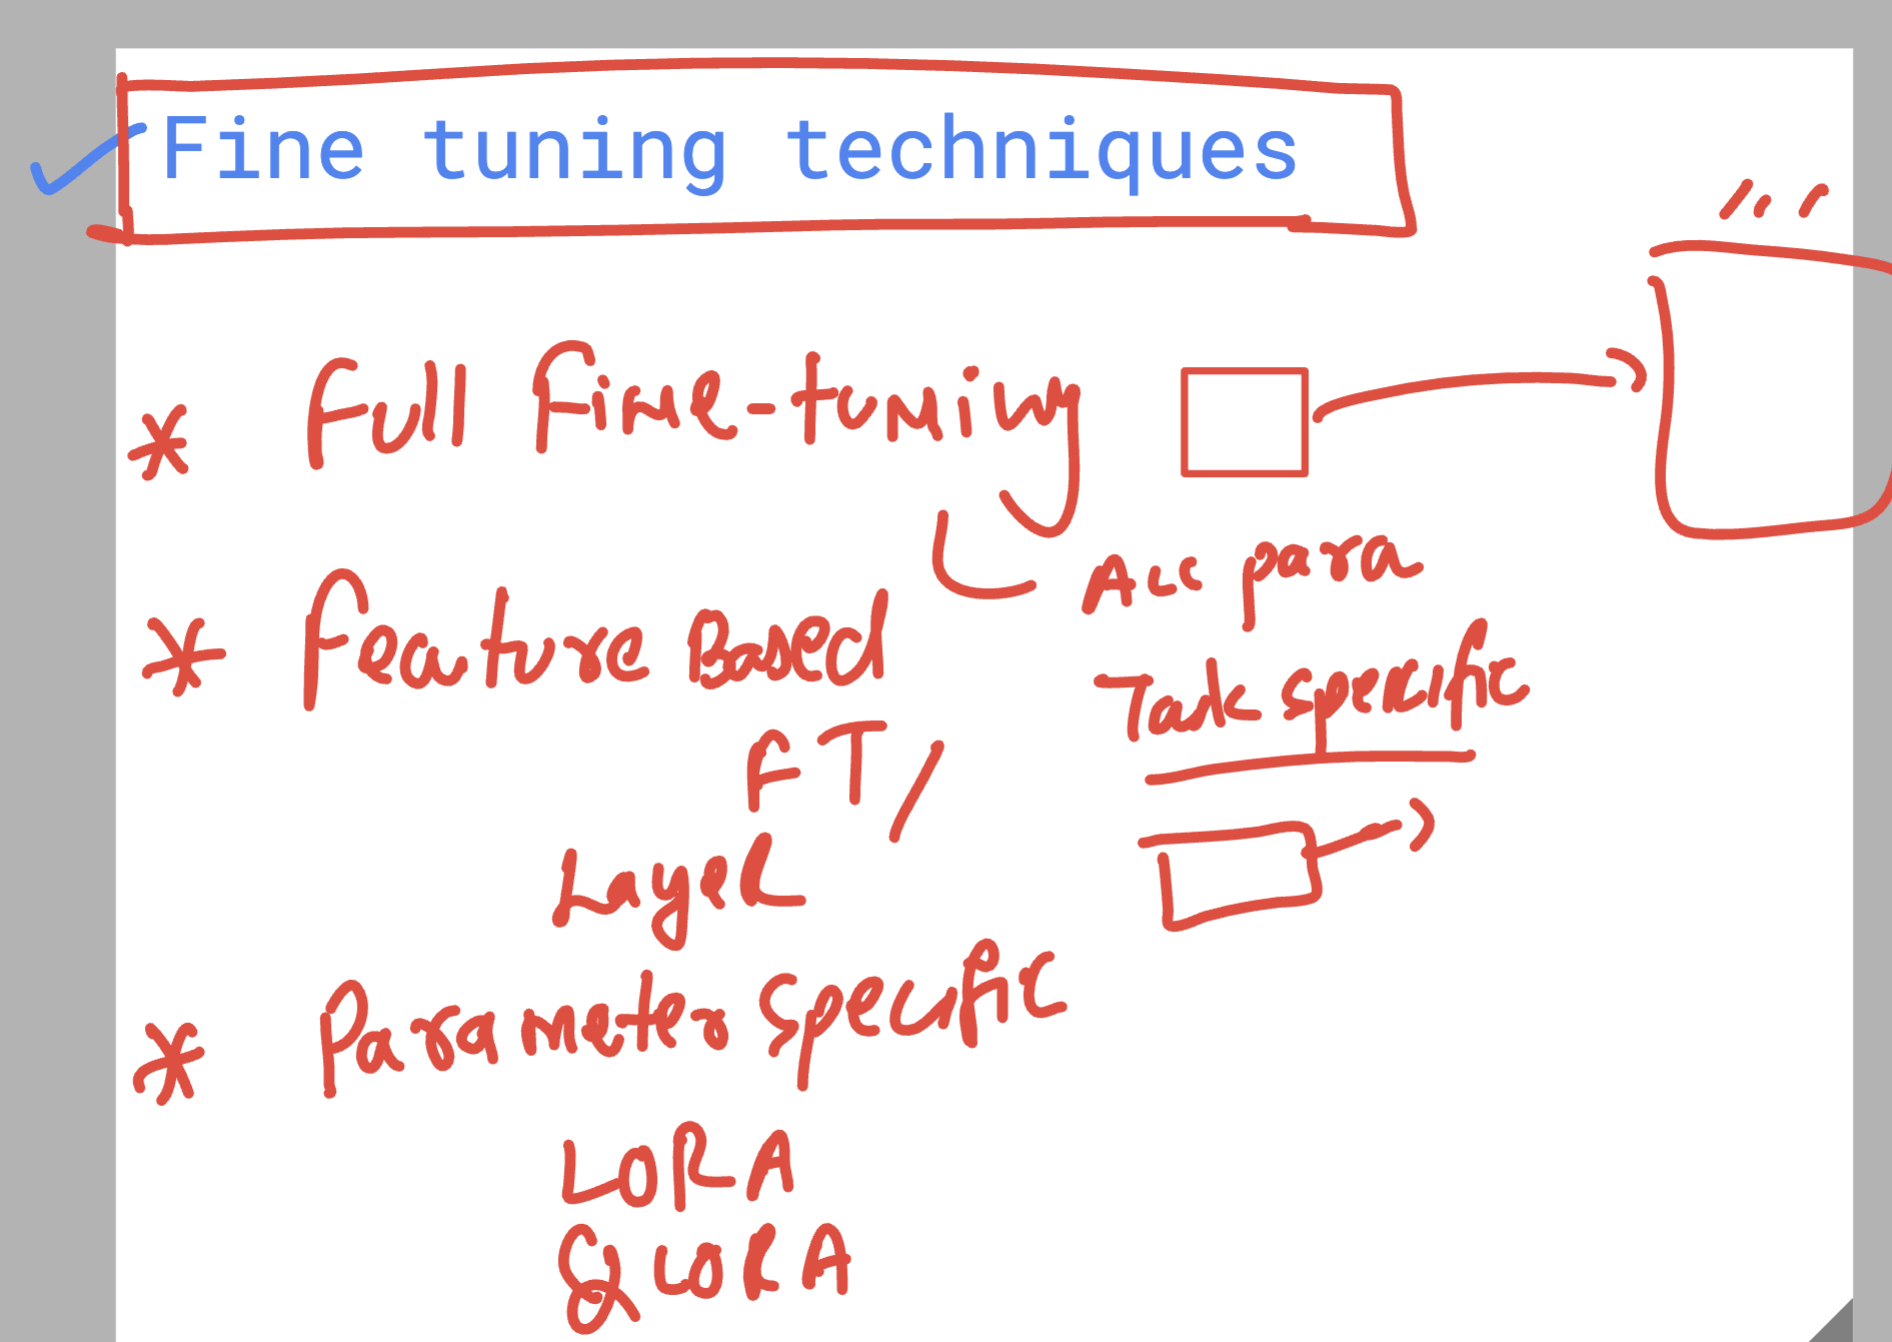 Fine tuning techniques
* Full Fine-tuning
ALL para
* Feature Based
Task specific
FT/
Layer
* Parameter specific
LORA
QLORA